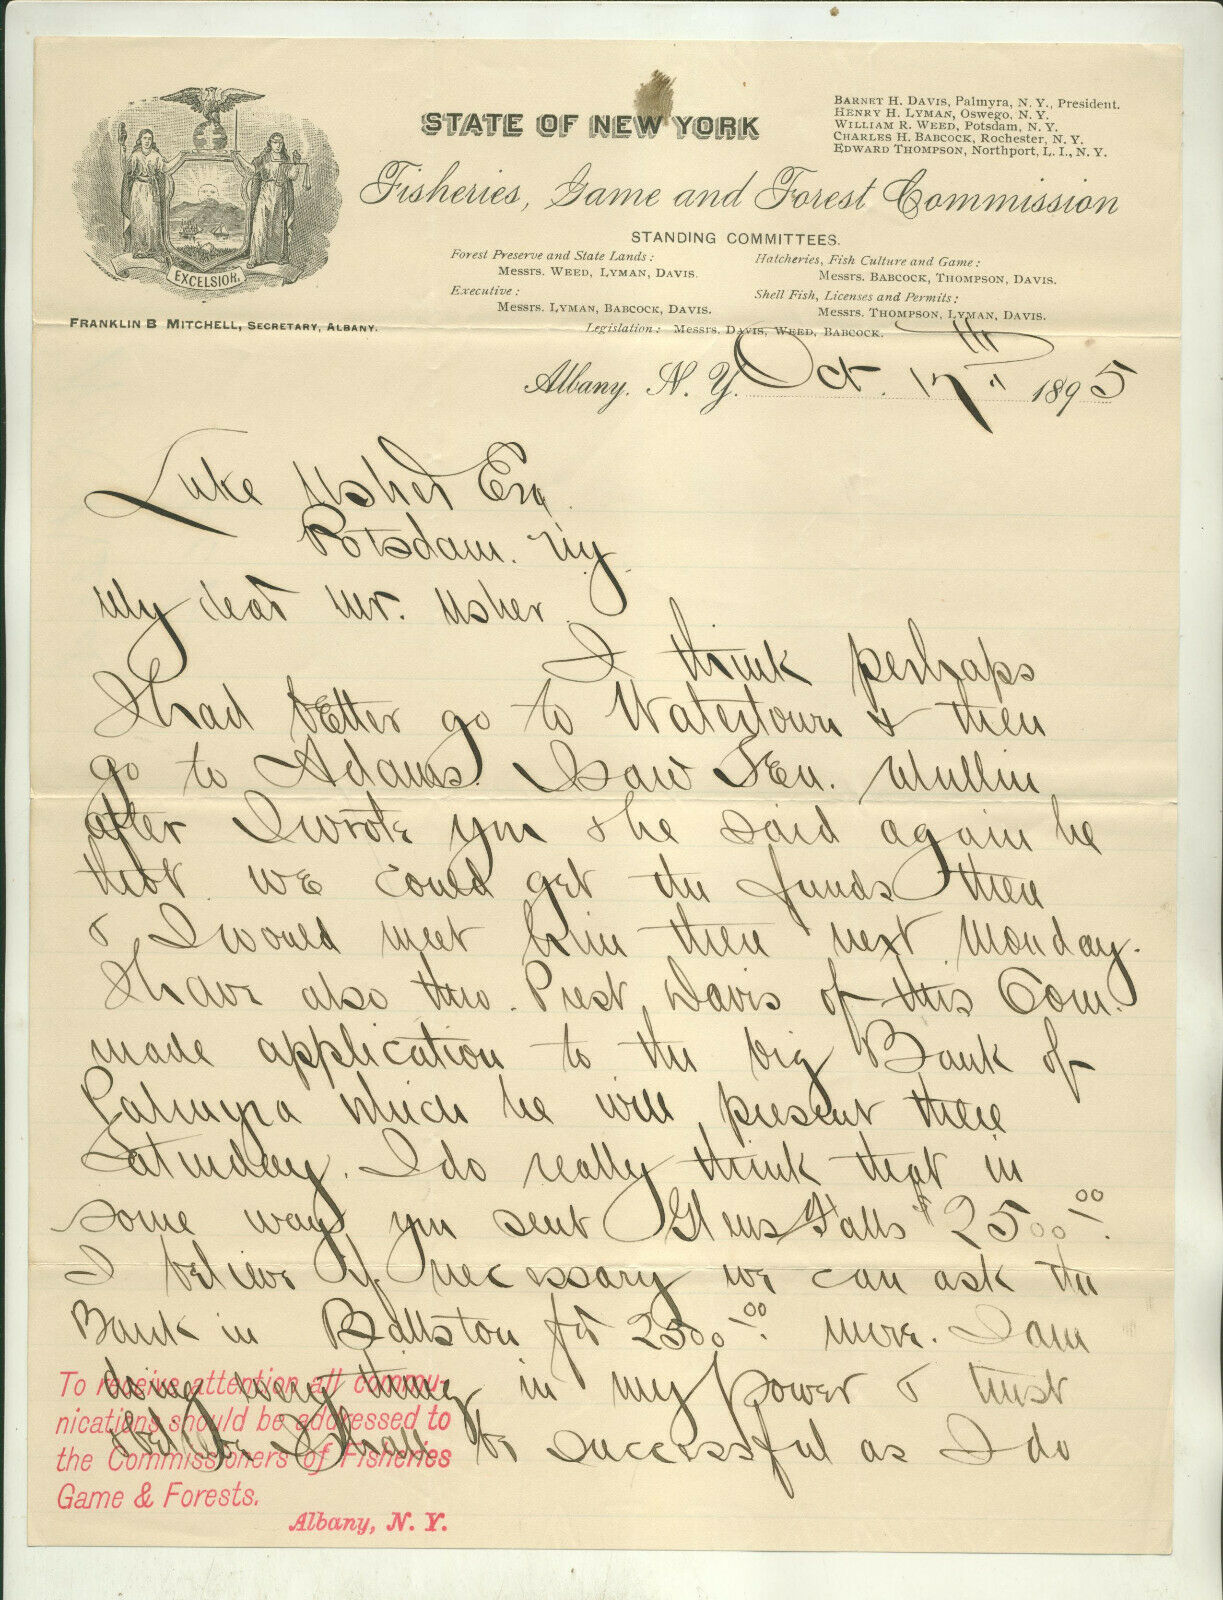 STATE OF NEW YORK
Fisheries, Game and Forest Commission
BARNET H. DAVIS, Palmyra, N. Y., President.
HENRY H. LYMAN, Oswego, N. Y.
WILLIAM R. WEED, Potsdam, N. Y.
CHARLES H. BABCOCK, Rochester, N. Y.
EDWARD THOMPSON, Northport, L. I., N. Y.
EXCELSIOR.
FRANKLIN B MITCHELL, SECRETARY, ALBANY.
STANDING COMMITTEES.
Forest Preserve and State Lands:
Messrs. WEED, LYMAN, DAVIS.
Executive:
Messrs. LYMAN, BABCOCK, DAVIS.
Hatcheries, Fish Culture and Game:
Messrs. BABCOCK, THOMPSON, DAVIS.
Shell Fish, Licenses and Permits:
Messrs. THOMPSON, LYMAN, DAVIS.
Legislation: Messrs. DAVIS, WEED, BABCOCK.
Albany, N. Y. Oct. 17th 1895
Luke Usher Esq
Potsdam. NY
My dear Mr. Usher.
I think perhaps
I had better go to Watertown & then
go to Adams. I saw Sen. Mullin
after I wrote you & he said again he
that we could get the funds there
& I would meet him there next Monday.
I have also thro. Prest. Davis of this Com.
made application to the big Bank of
Palmyra which he will present there
Saturday. I do really think that in
some way you sent Glens Falls $2500.00
I believe if necessary we can ask the
Bank in Ballston for 2500.00 more. I am
doing everything in my power & trust
I shall be successful as I do
To receive attention all commu-
nications should be addressed to
the Commissioners of Fisheries
Game & Forests.
Albany, N. Y.